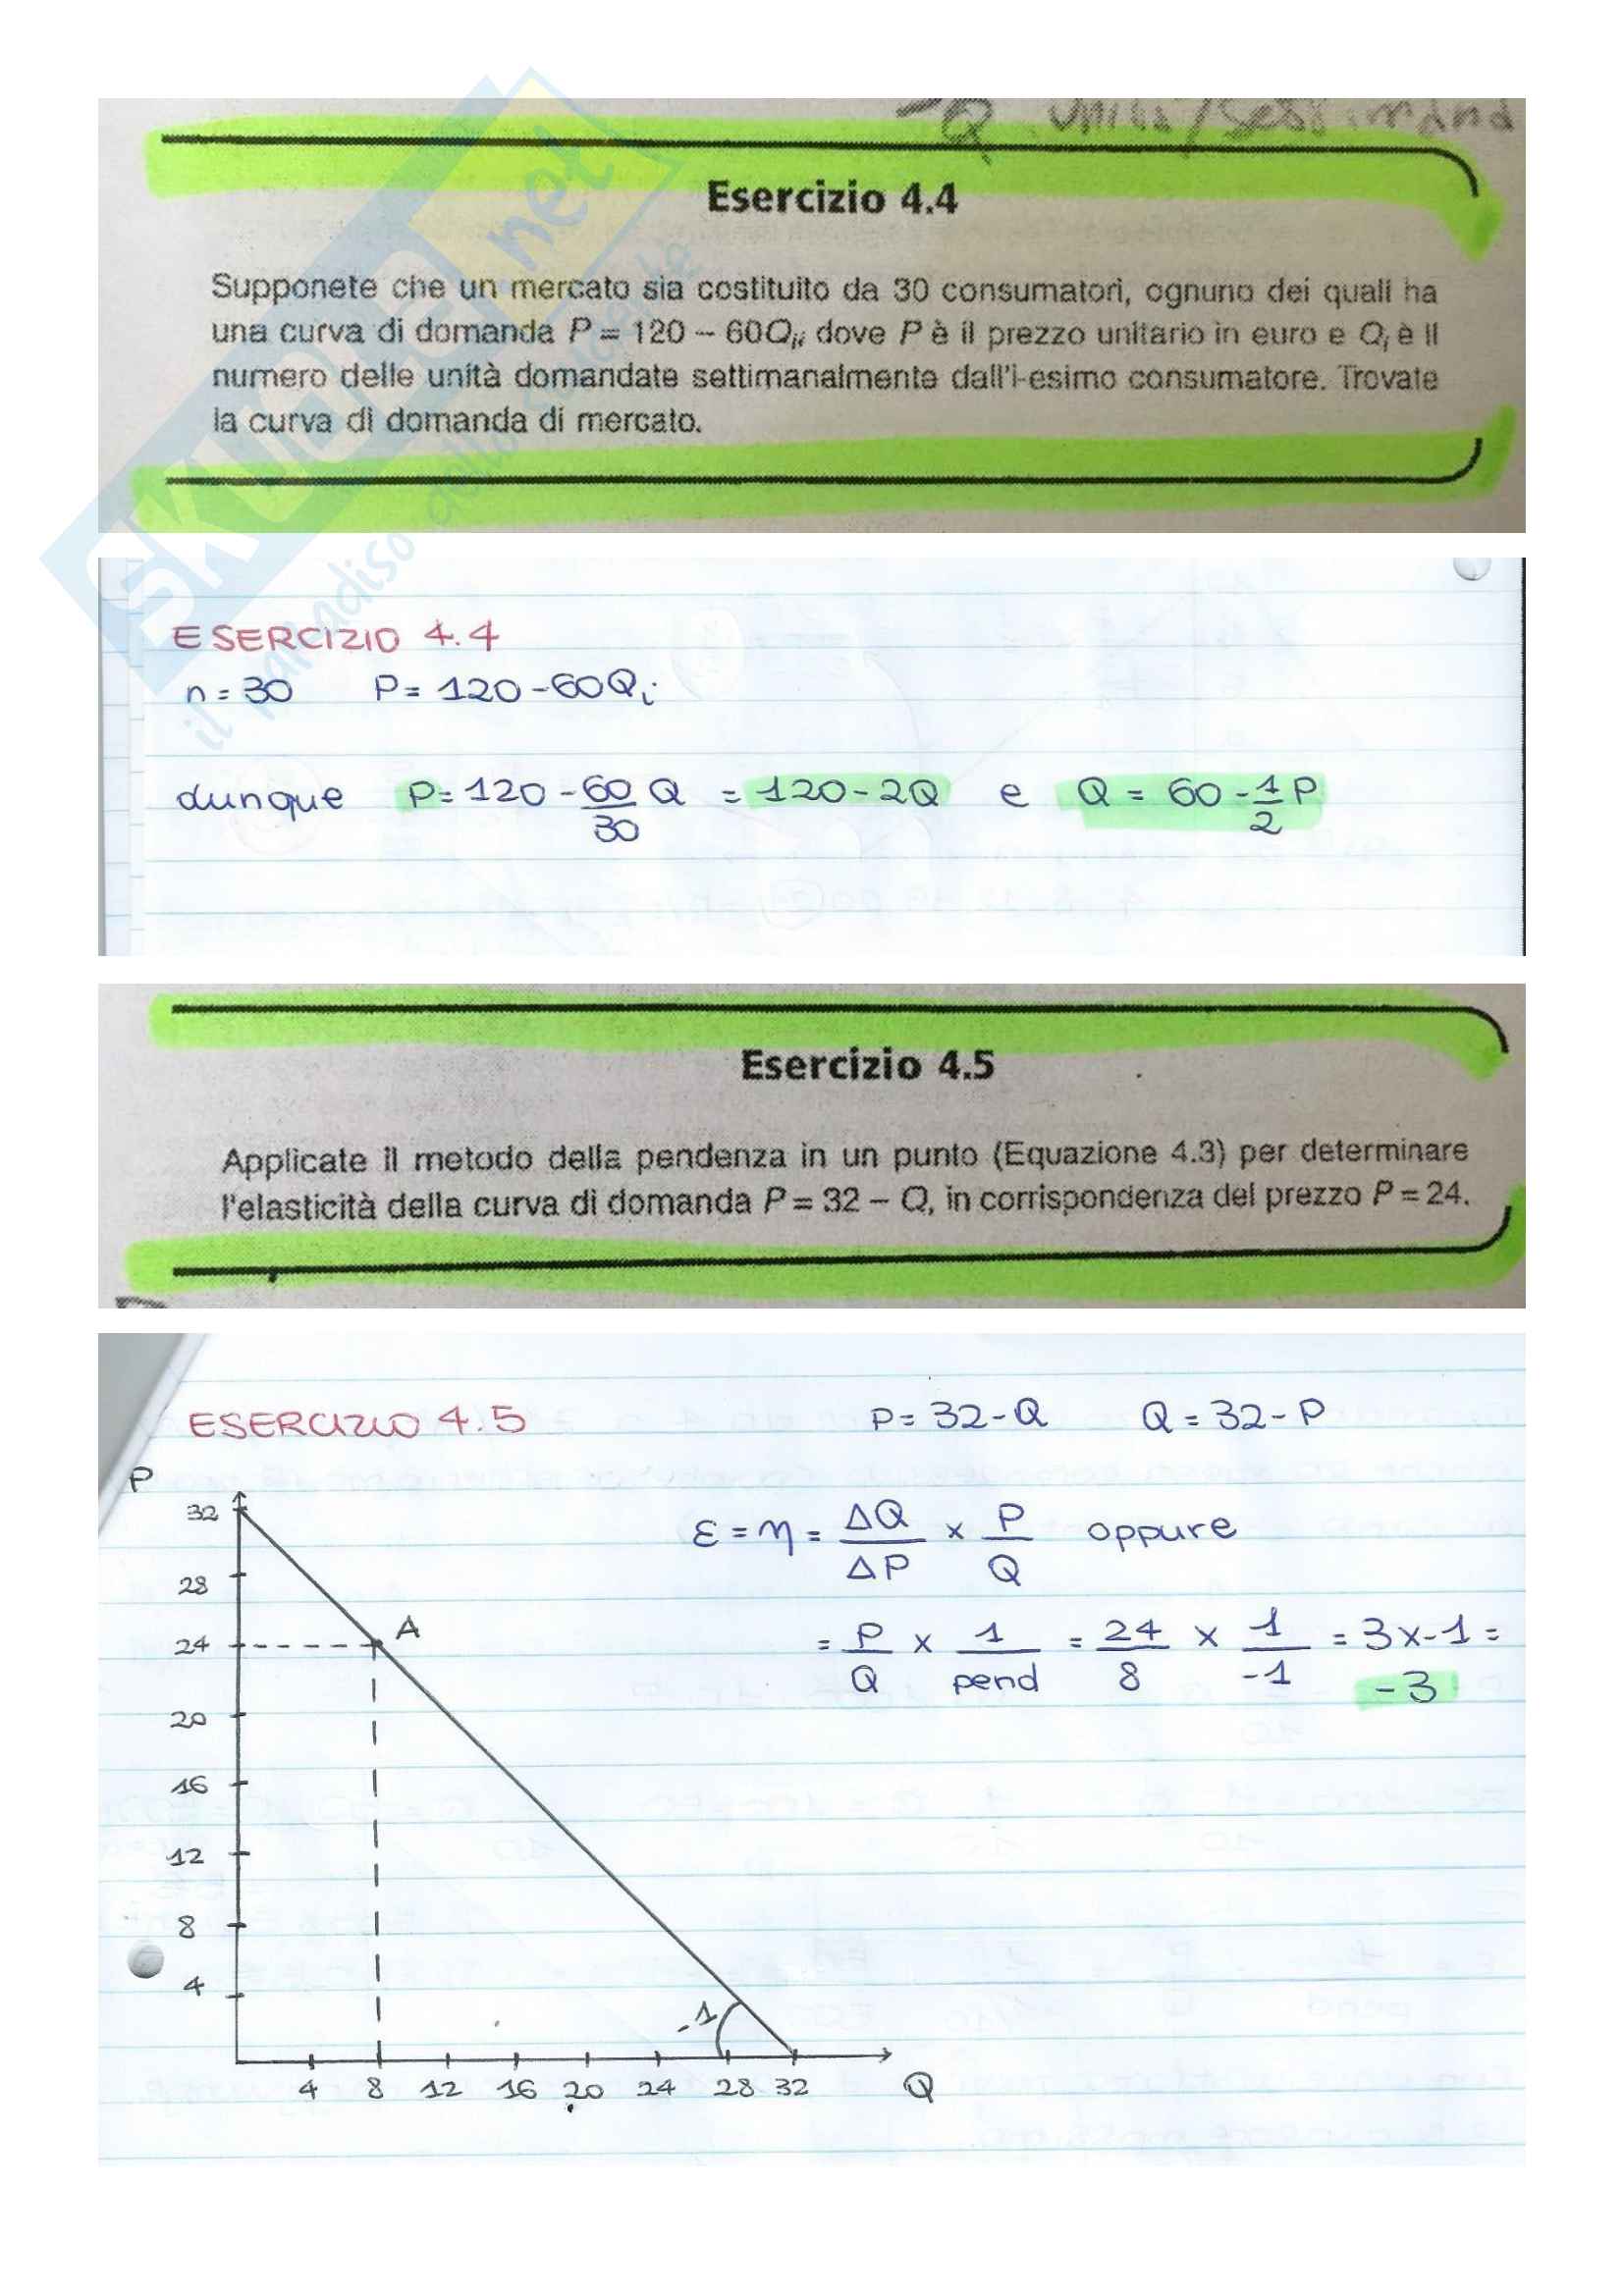 Q unità/settimana
Esercizio 4.4
Supponete che un mercato sia costituito da 30 consumatori, ognuno dei quali ha
una curva di domanda P = 120 – 60Qi, dove P è il prezzo unitario in euro e Qi è il
numero delle unità domandate settimanalmente dall'i-esimo consumatore. Trovate
la curva di domanda di mercato.
SKUOLA.net
il paradiso dello studente
ESERCIZIO 4.4
n = 30 P = 120 - 60Qi
dunque P = 120 - 60/30 Q = 120 - 2Q e Q = 60 - 1/2 P
Esercizio 4.5
Applicate il metodo della pendenza in un punto (Equazione 4.3) per determinare
l'elasticità della curva di domanda P = 32 – Q, in corrispondenza del prezzo P = 24.
ESERCIZIO 4.5 P = 32 - Q Q = 32 - P
P
ε = η = ΔQ/ΔP × P/Q oppure
= P/Q × 1/pend = 24/8 × 1/-1 = 3 × -1 =
-3
32
28
24 A
20
16
12
8
4
-1
4 8 12 16 20 24 28 32 Q